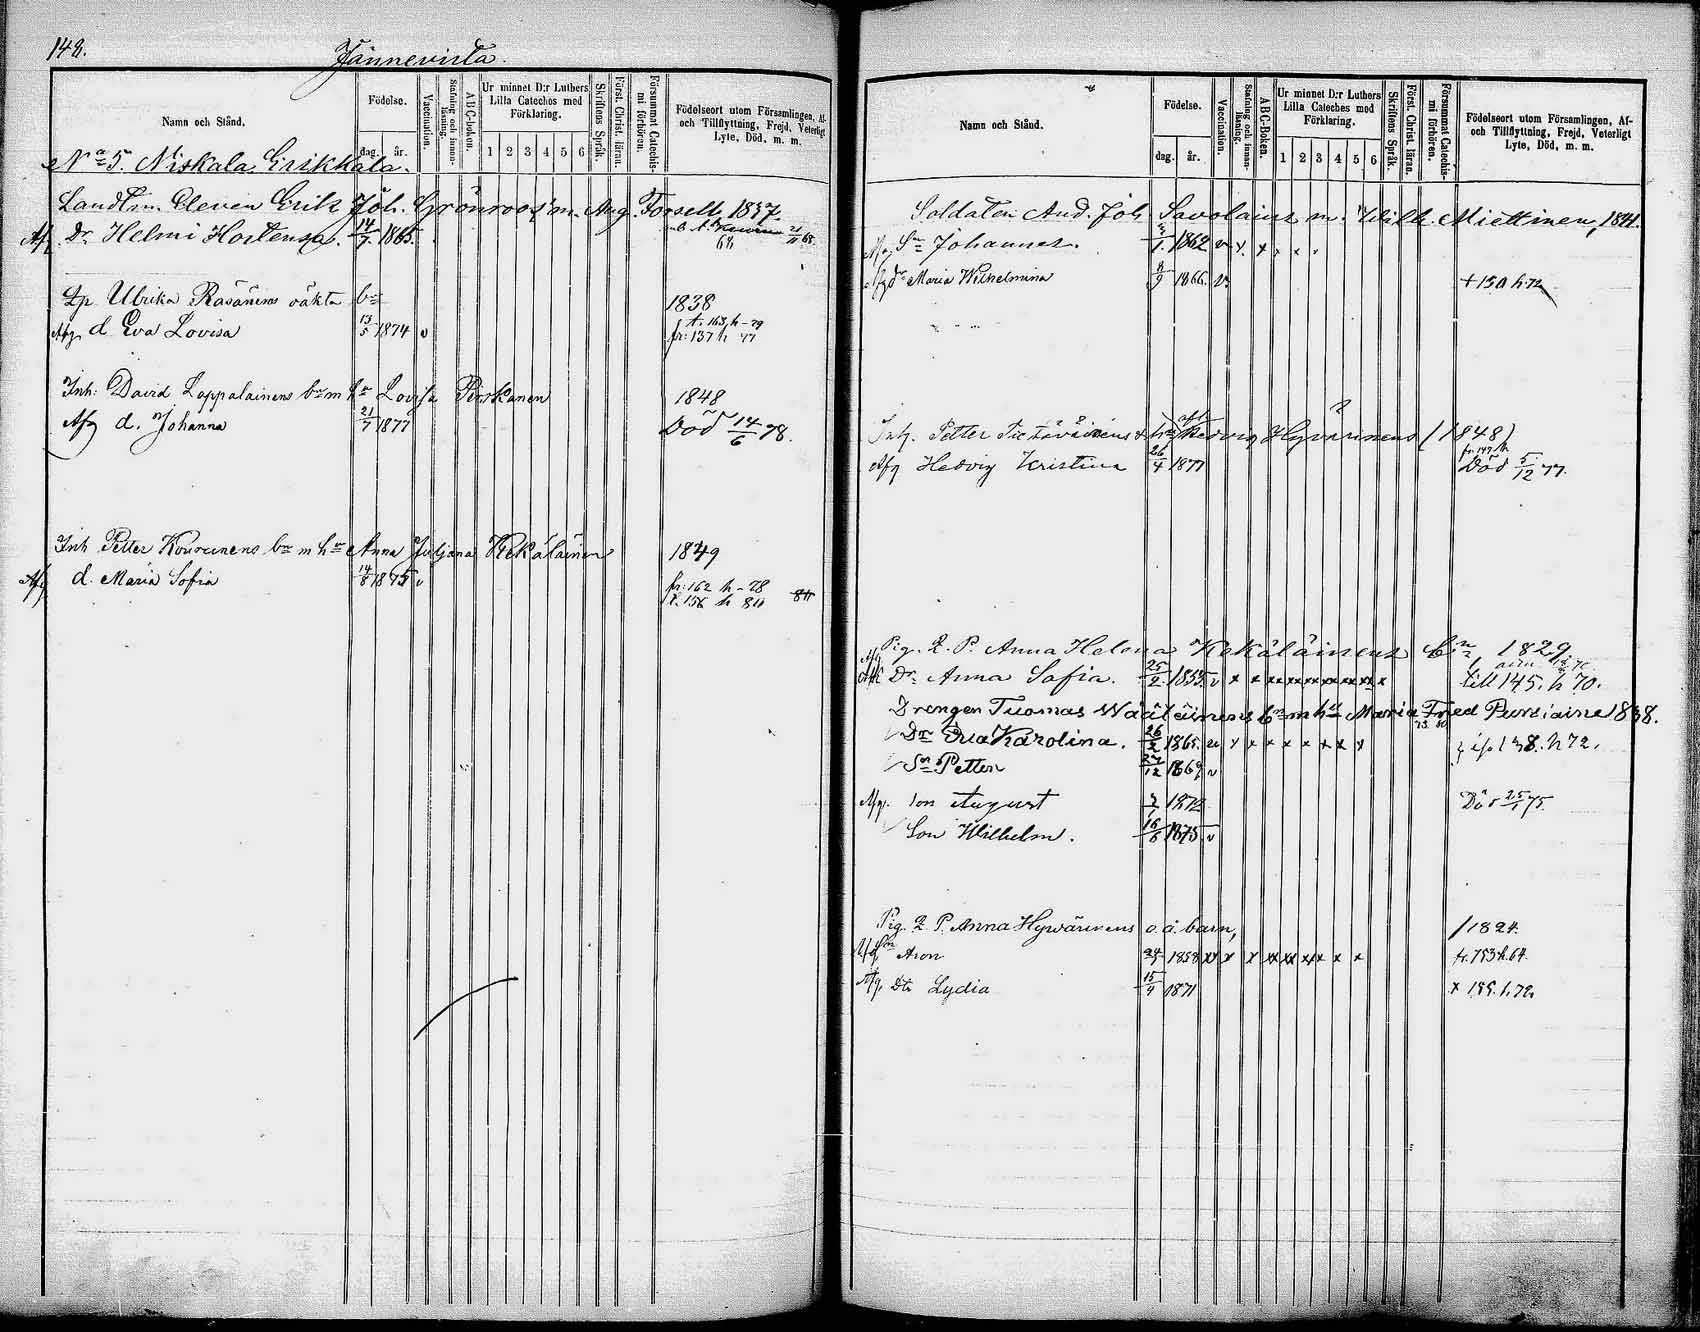 148.
Jännevirta.
Namn och Stånd.
Födelse.
dag. år.
Vaccination.
Stafning och innan-läsning.
ABC-boken.
Ur minnet D:r Luthers Lilla Cateches med Förklaring.
1 2 3 4 5 6
Skriftens Språk.
Först. Christ. läran.
Försummat Catechis-mi förhören.
Födelseort utom Församlingen, Af- och Tillflyttning, Frejd, Veterligt Lyte, Död, m. m.
No 5. Niskala Erikkala.
Landtm. Eleven Erik Joh. Grönroos m. Aug. Forsell 1837.
Afg Dr. Helmi Hortensa. 14/7 1865. 21/11 65
68
Lp Ulrika Räsänens oäkta bn 1838
Afg d Eva Lovisa 13/5 1874 v t. 163 h - 79
fr: 137 h 77
Inh: David Lappalainens bn m hu Lovisa Pirskanen 1848
Afg d. Johanna 21/7 1877 Död 14/6 78.
Inh Petter Kourunens bn m hu Anna Juljana Kekäläinen 1849
Afg d. Maria Sofia 14/8 1875 v fr: 162 h - 78
t. 156 h 80
Namn och Stånd.
Födelse.
dag. år.
Vaccination.
Stafning och innan-läsning.
ABC-Boken.
Ur minnet D:r Luthers Lilla Cateches med Förklaring.
1 2 3 4 5 6
Skriftens Språk.
Först. Christ. läran.
Försummat Catechis-mi förhören.
Födelseort utom Församlingen, Af- och Tillflyttning, Frejd, Veterligt Lyte, Död, m. m.
Soldaten And. Joh. Savolains m. Wilh. Miettinen, 1841.
Afg Sn Johannes. 1862 v x x . . .
Afg dr Maria Wilhelmina 8/9 1866. v. + 150 h. 72
Inh. Petter Hedvig Hyvärinens (1848)
fr 147 h
Afg Hedvig Kristina 26/4 1877 Död 5/12 77.
Afg Pig. L. P. Anna Helena Kekäläinens bn 1829.
Afk Dr Anna Sofia. 25/2 1853. v x x xx xx xx xx xx x till 145. h 70.
Drengen Tuomas Wäätäinens bn m hu Maria Fred 1838.
Dr Eva Karolina. 26/2 1865. v x x x x x x x 138. h 72.
Sn Petter 27/12 1869 v
Afg. son August 1872 Död 25/ 75.
Son Wilhelm. 16/6 1875 v
Pig. L. P. Anna Hyvärinens o. ä. barn, / 1824.
Afg Son Aron 1858 xx x x xx xx xx x x fr. 753 h. 64.
Afg. Dtr Lydia 15/4 1871 x 189. h. 72